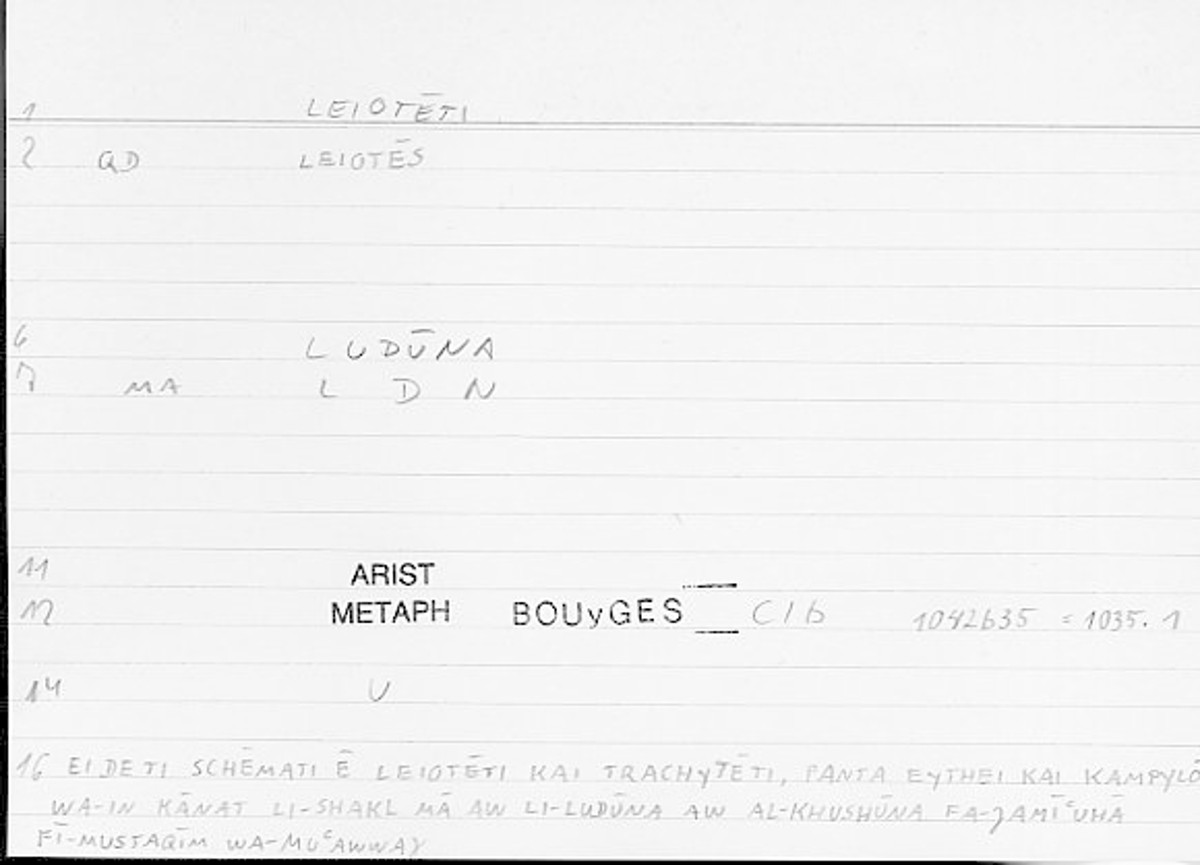 1 LEIOTĒTI
2 QD LEIOTĒS
6 LUDŪNA
7 MA L D N
11 ARIST
12 METAPH BOUyGES C1b 1042b35 = 1035.1
14 U
16 EI DE TI SCHĒMATI Ē LEIOTĒTI KAI TRACHYTĒTI, PANTA EYTHEI KAI KAMPYLŌ
WA-IN KĀNAT LI-SHAKL MĀ AW LI-LUDŪNA AW AL-KHUSHŪNA FA-JAMĪʿUHĀ
FĪ-MUSTAQĪM WA-MUʿAWWAJ